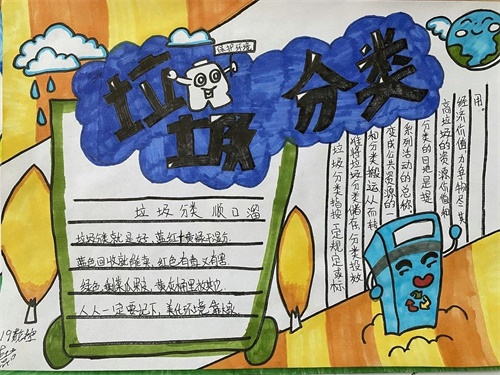 保护环境
垃圾分类
垃圾分类 顺口溜
垃圾分类就是好，蓝红
蓝色回收就能卖，红色有毒又有害
绿色
人人一定要记下，美化环境靠大家
垃圾分类指按一定规定或标
准将垃圾分类储存、分类投放
和分类搬运从而转
变成公共资源的一
系列活动的总称
分类的目地是提
高垃圾的资源价值和
经济价值力争物尽其
用